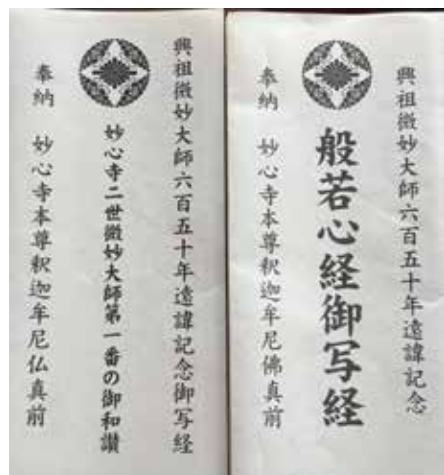 興祖微妙大師六百五十年遠諱記念
般若心経御写経
奉納 妙心寺本尊釈迦牟尼佛真前
興祖微妙大師六百五十年遠諱記念御写経
妙心寺二世微妙大師第一番の御和讃
奉納 妙心寺本尊釈迦牟尼仏真前